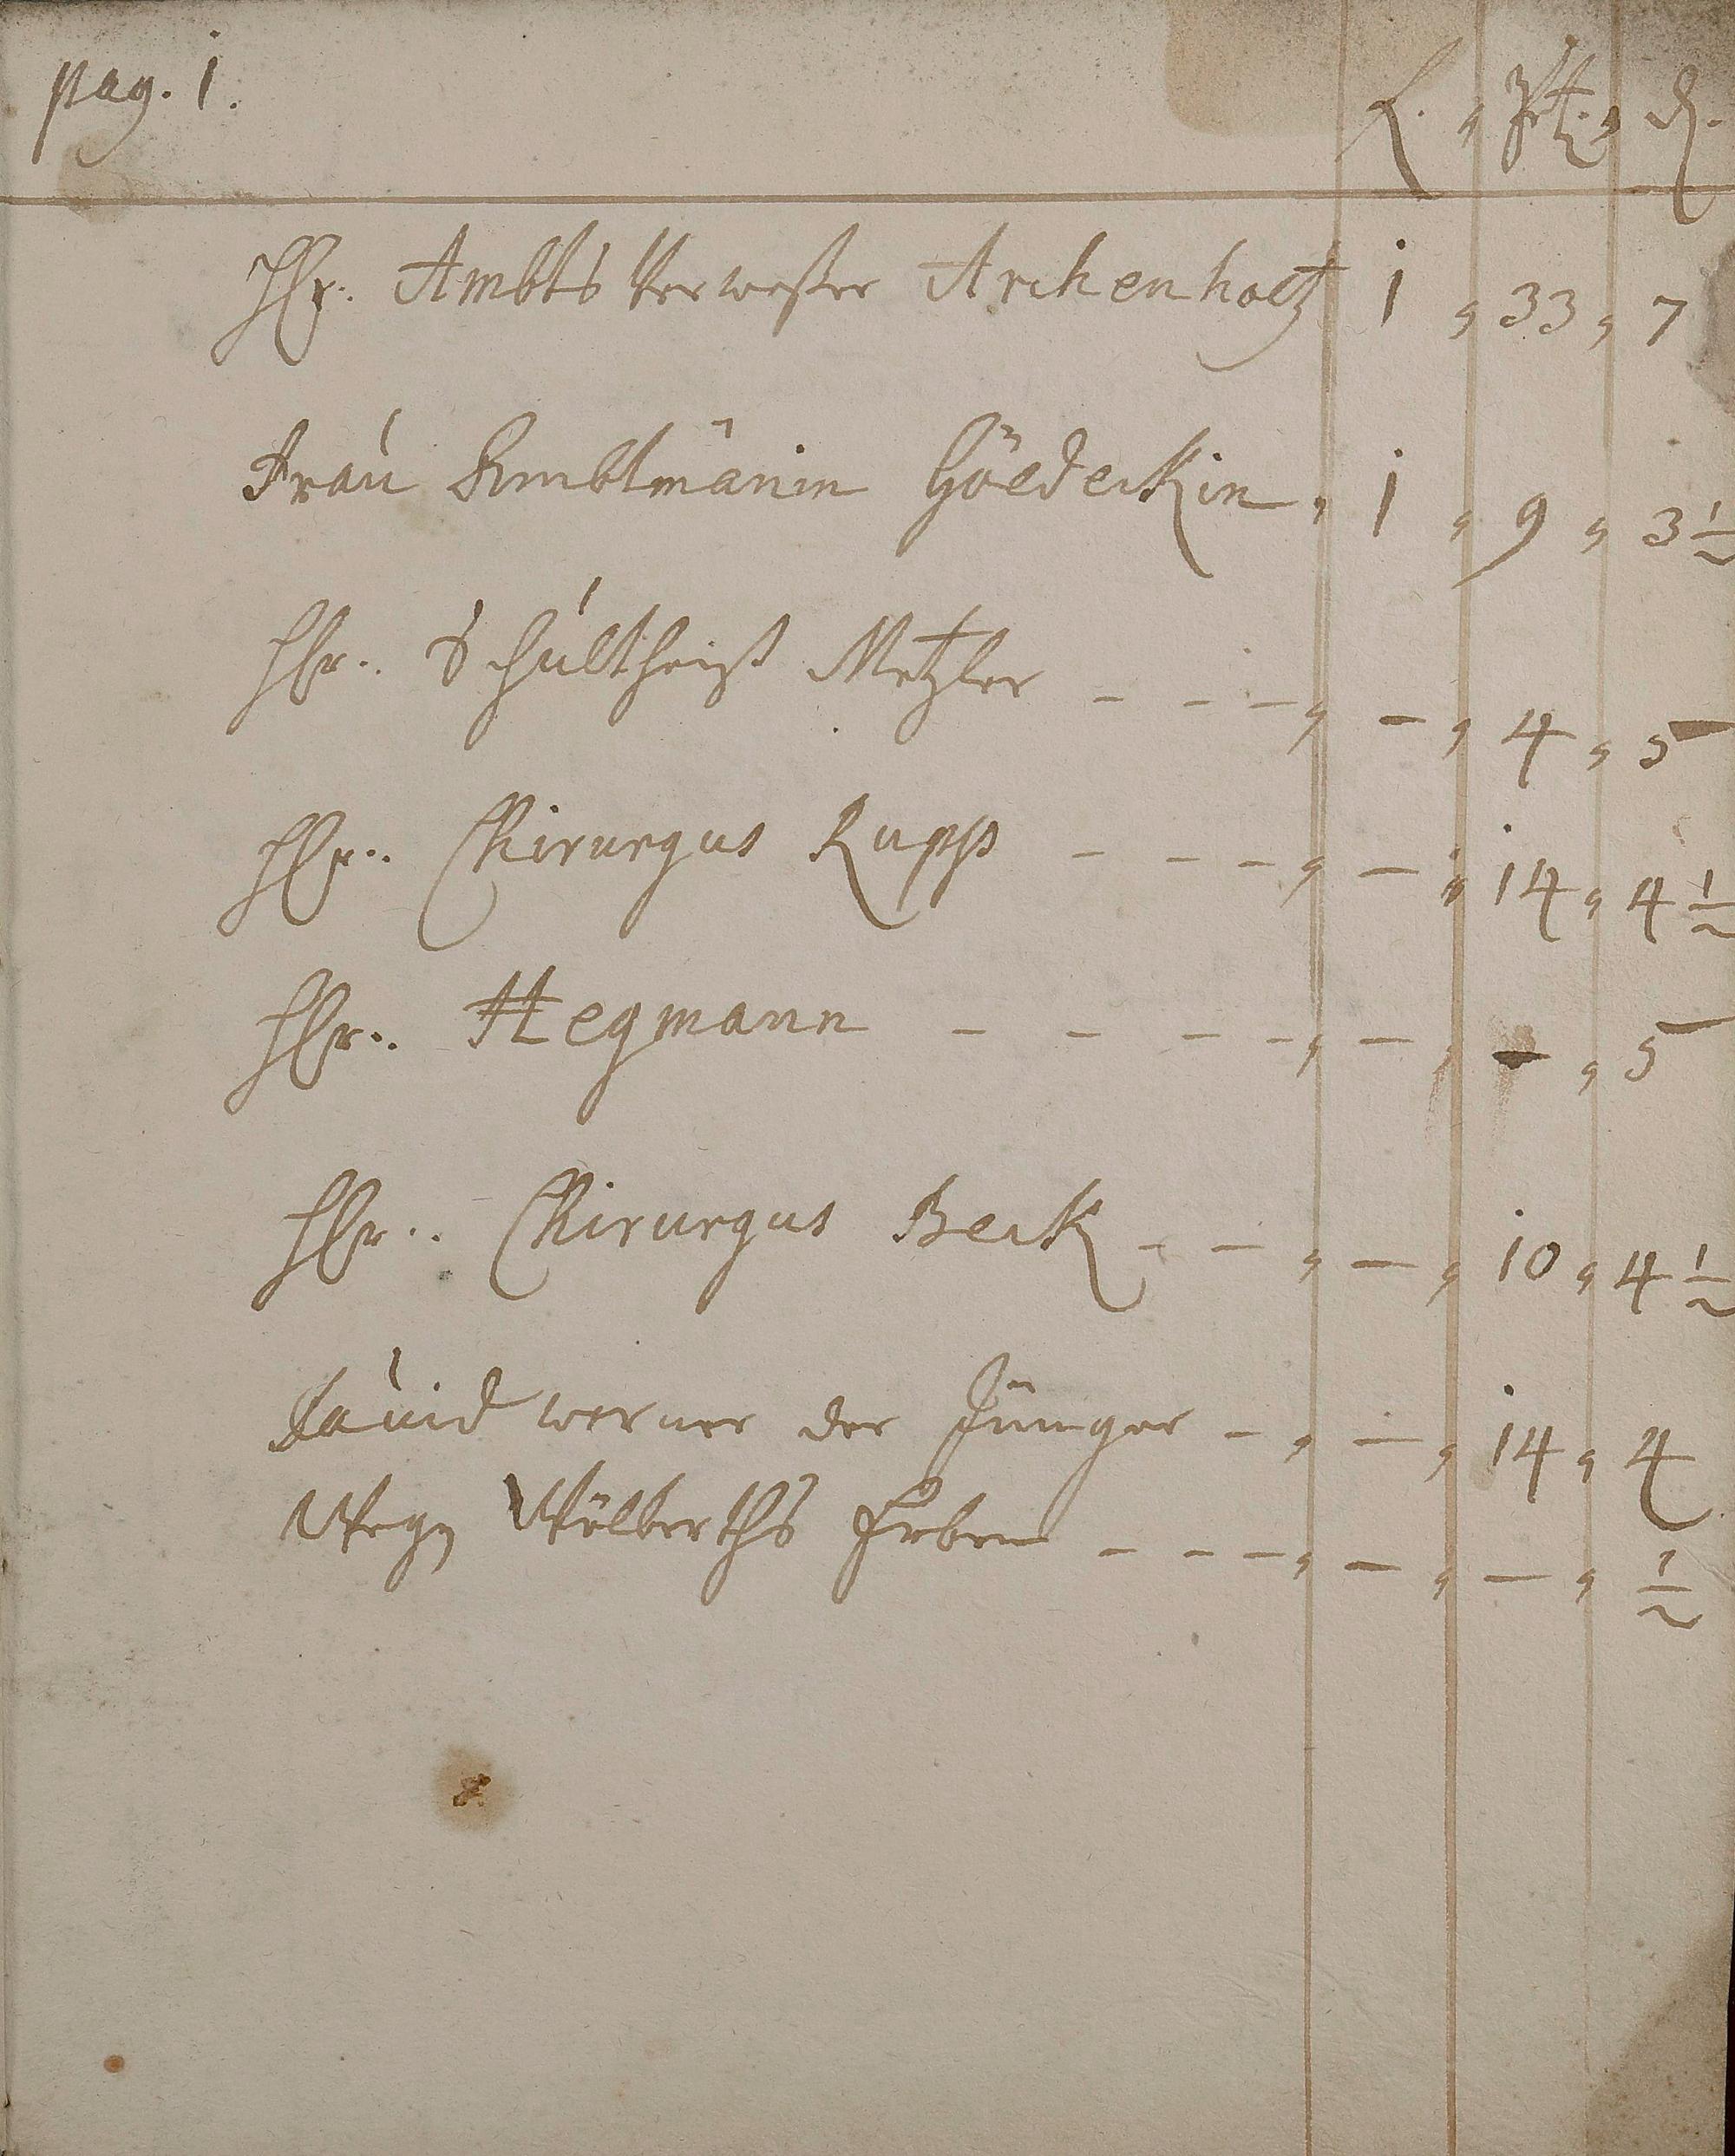 pag. 1.
Hr. Ambts Verweßer Archenholtz 1 , 33 , 7
Frau Ambtmänin Göedeckin , 1 , 9 , 3 1/2
Hr. Schultheiß Metzler - - - , - , 4 , 5
Hr. Chirurgus Rupp - - - , - , 14 , 4 1/2
Hr. Hegmann - - - - , - , - , 5
Hr. Chirurgus Beck - - , - , 10 , 4 1/2
David werner der Jünger - , - , 14 , 4
Wölberths Erben - - - , - , - , 1/2